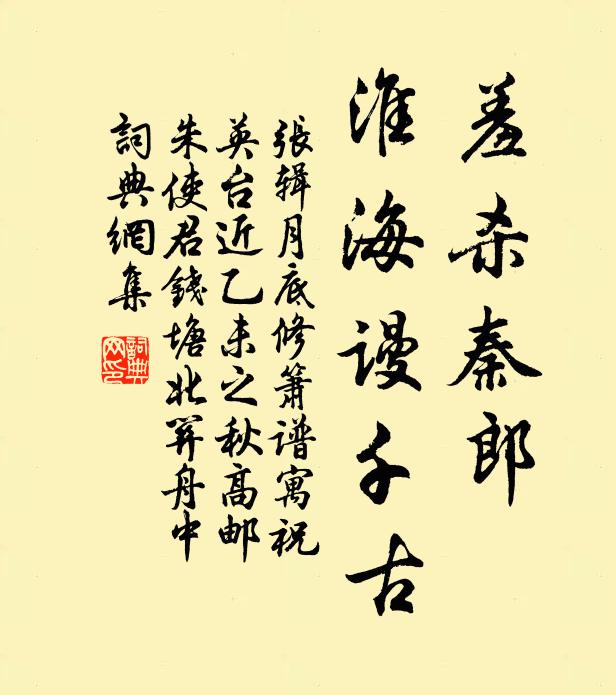 羞杀秦郎
淮海谩千古
張辑月底修箫谱寓祝
英台近乙未之秋高邮
朱使君錢塘北關舟中
詞典網集
詞典网印